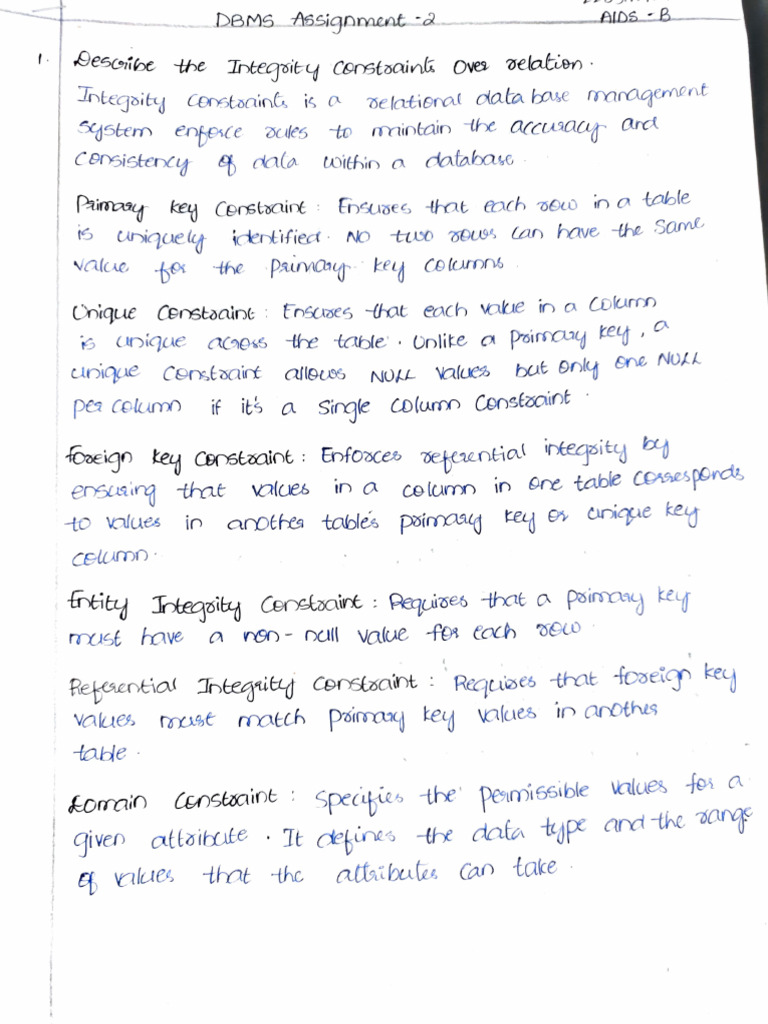 DBMS Assignment - 2
AIDS - B
1. Describe the Integrity Constraints Over relation.
Integrity constraints is a relational data base management
system enforce rules to maintain the accuracy and
consistency of data within a database.
Primary key Constraint : Ensures that each row in a table
is uniquely identified. No two rows can have the same
value for the primary key columns.
Unique Constraint : Ensures that each value in a column
is unique across the table. Unlike a primary key, a
unique constraint allows NULL values but only one NULL
per column if it's a single column constraint.
Foreign key constraint : Enforces referential integrity by
ensuring that values in a column in one table corresponds
to values in another table's primary key or unique key
column.
Entity Integrity Constraint : Requires that a primary key
must have a non-null value for each row.
Referential Integrity Constraint : Requires that foreign key
values must match primary key values in another
table.
Domain Constraint : Specifies the permissible values for a
given attribute. It defines the data type and the range
of values that the attributes can take.